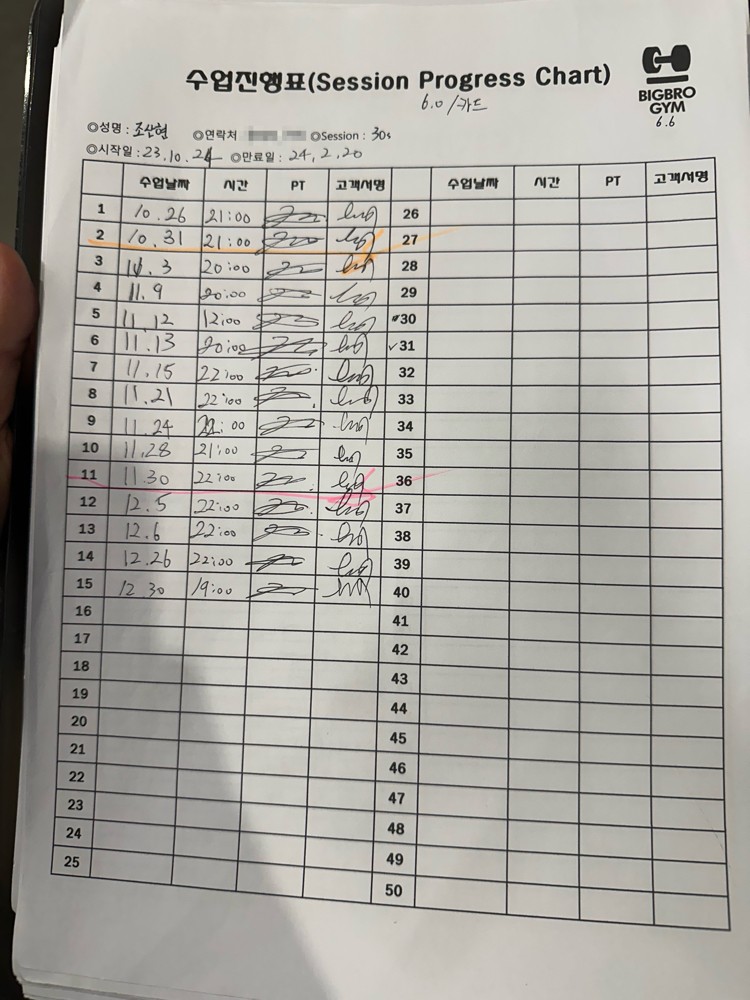 수업진행표(Session Progress Chart)
6.0/카드
BIGBRO
GYM
6.6
◎성명 : 조산현 ◎연락처 ◎Session : 30s
◎시작일 : 23.10.24 ◎만료일 : 24,2,20
수업날짜 시간 PT 고객서명 수업날짜 시간 PT 고객서명
1 10.26 21:00 26
2 10.31 21:00 27
3 11.3 20:00 28
4 11.9 20:00 29
5 11.12 12:00 30
6 11.13 20:00 31
7 11.15 22:00 32
8 11.21 22:00 33
9 11.24 22:00 34
10 11.28 21:00 35
11 11.30 22:00 36
12 12.5 22:00 37
13 12.6 22:00 38
14 12.26 22:00 39
15 12.30 19:00 40
16 41
17 42
18 43
19 44
20 45
21 46
22 47
23 48
24 49
25 50